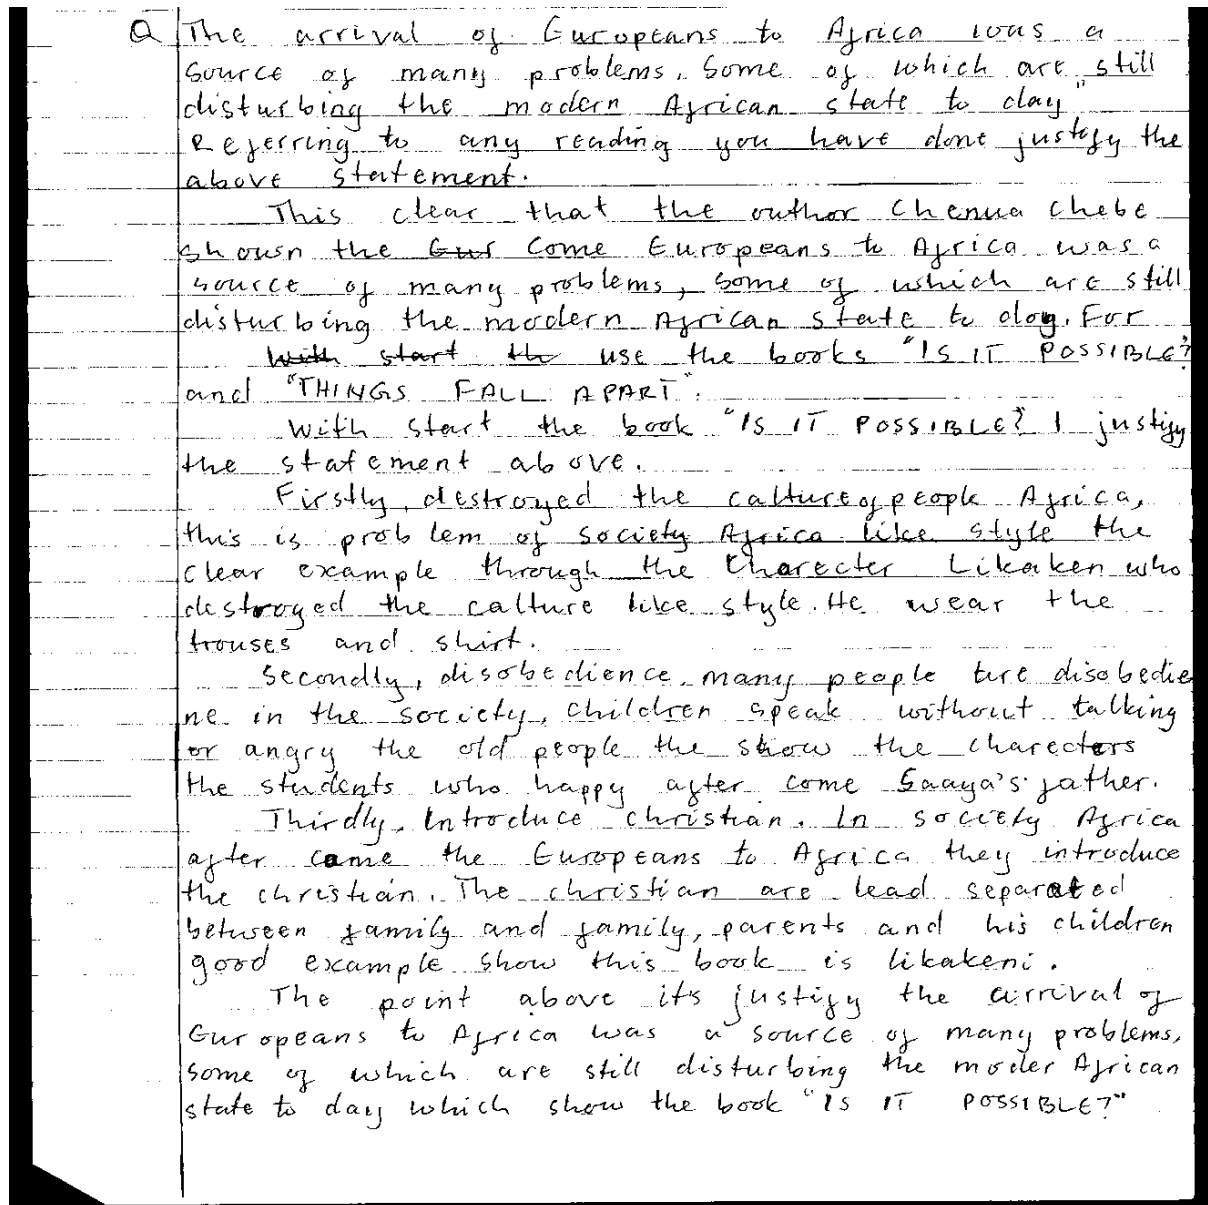 Q The arrival of Europeans to Africa was a
source of many problems, Some of which are still
disturbing the modern African state to day"
Referring to any reading you have done justify the
above statement.
This clear that the outhor Chenua Chebe
shown the Eur Come Europeans to Africa was a
source of many problems, some of which are still
disturbing the modern African state to day. For
With start the use the books "IS IT POSSIBLE?
and "THINGS FALL APART".
With start the book "IS IT POSSIBLE? I justify
the statement above.
Firstly, destroyed the calture of people Africa,
this is problem of society Africa like style the
clear example through the Charecter Likaken who
destroyed the calture like style. He wear the
trouses and shirt.
Secondly, disobedience many people are disobedie
ne in the society, children speak without talking
or angry the old people the show the charecters
the students who happy after come Saaya's father.
Thirdly, Introduce christian. In society Africa
after came the Europeans to Africa they introduce
the christian. The christian are lead separated
between family and family, parents and his children
good example show this book is likakeni.
The point above its justify the arrival of
Europeans to Africa was a source of many problems,
some of which are still disturbing the moder African
state to day which show the book "IS IT POSSIBLE?"